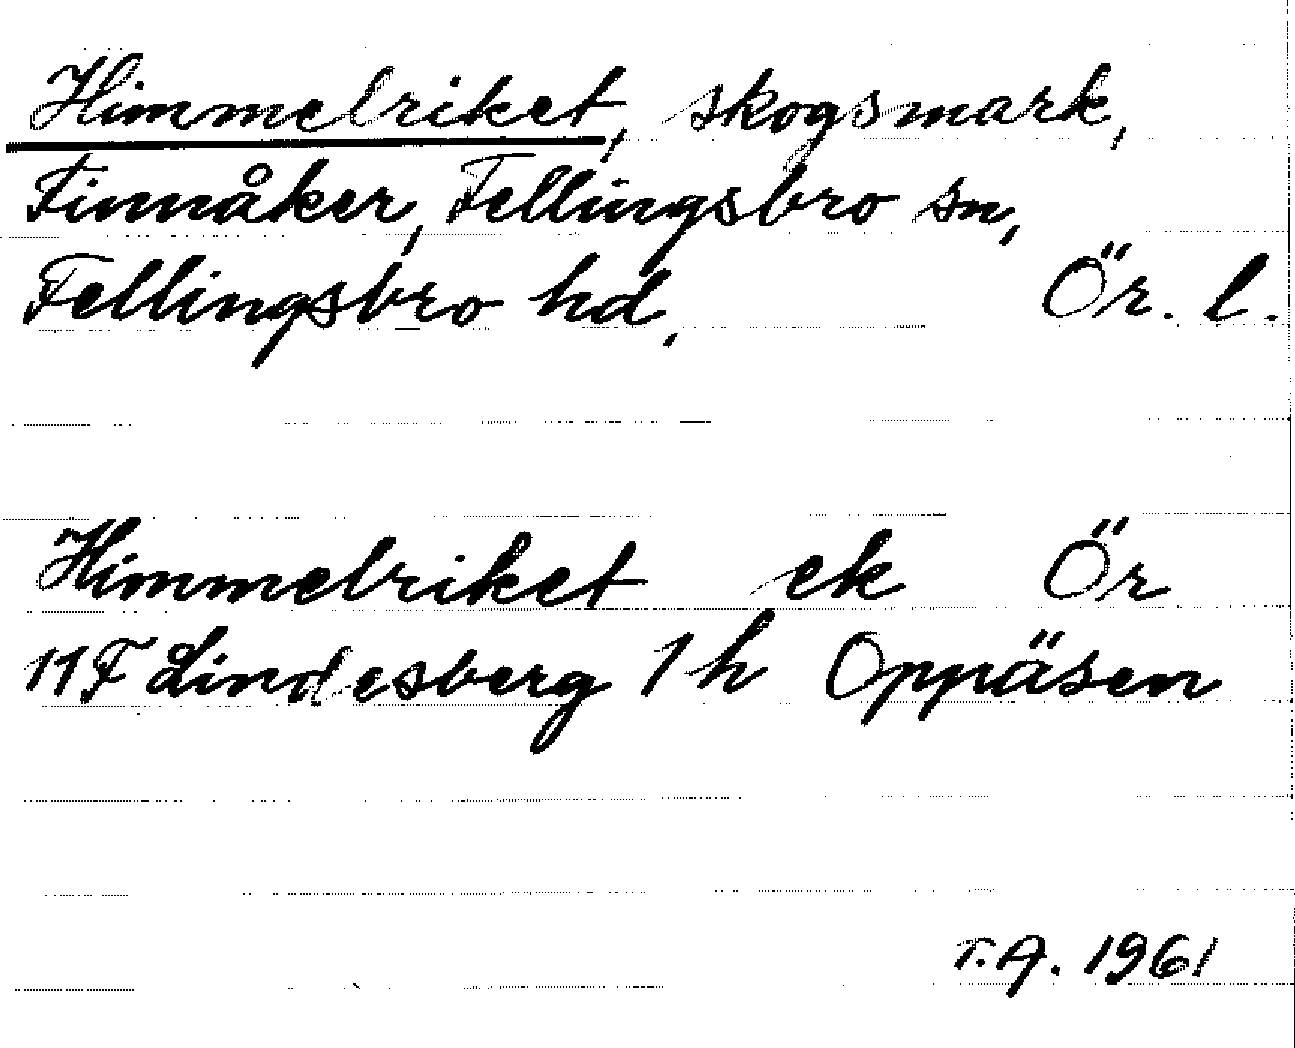 Himmelriket, skogsmark,
Finnåker, Fellingsbro sn,
Fellingsbro hd, Ör. l.
Himmelriket ek Ör
11F Lindesberg 1 h Oppåsen
T.A. 1961